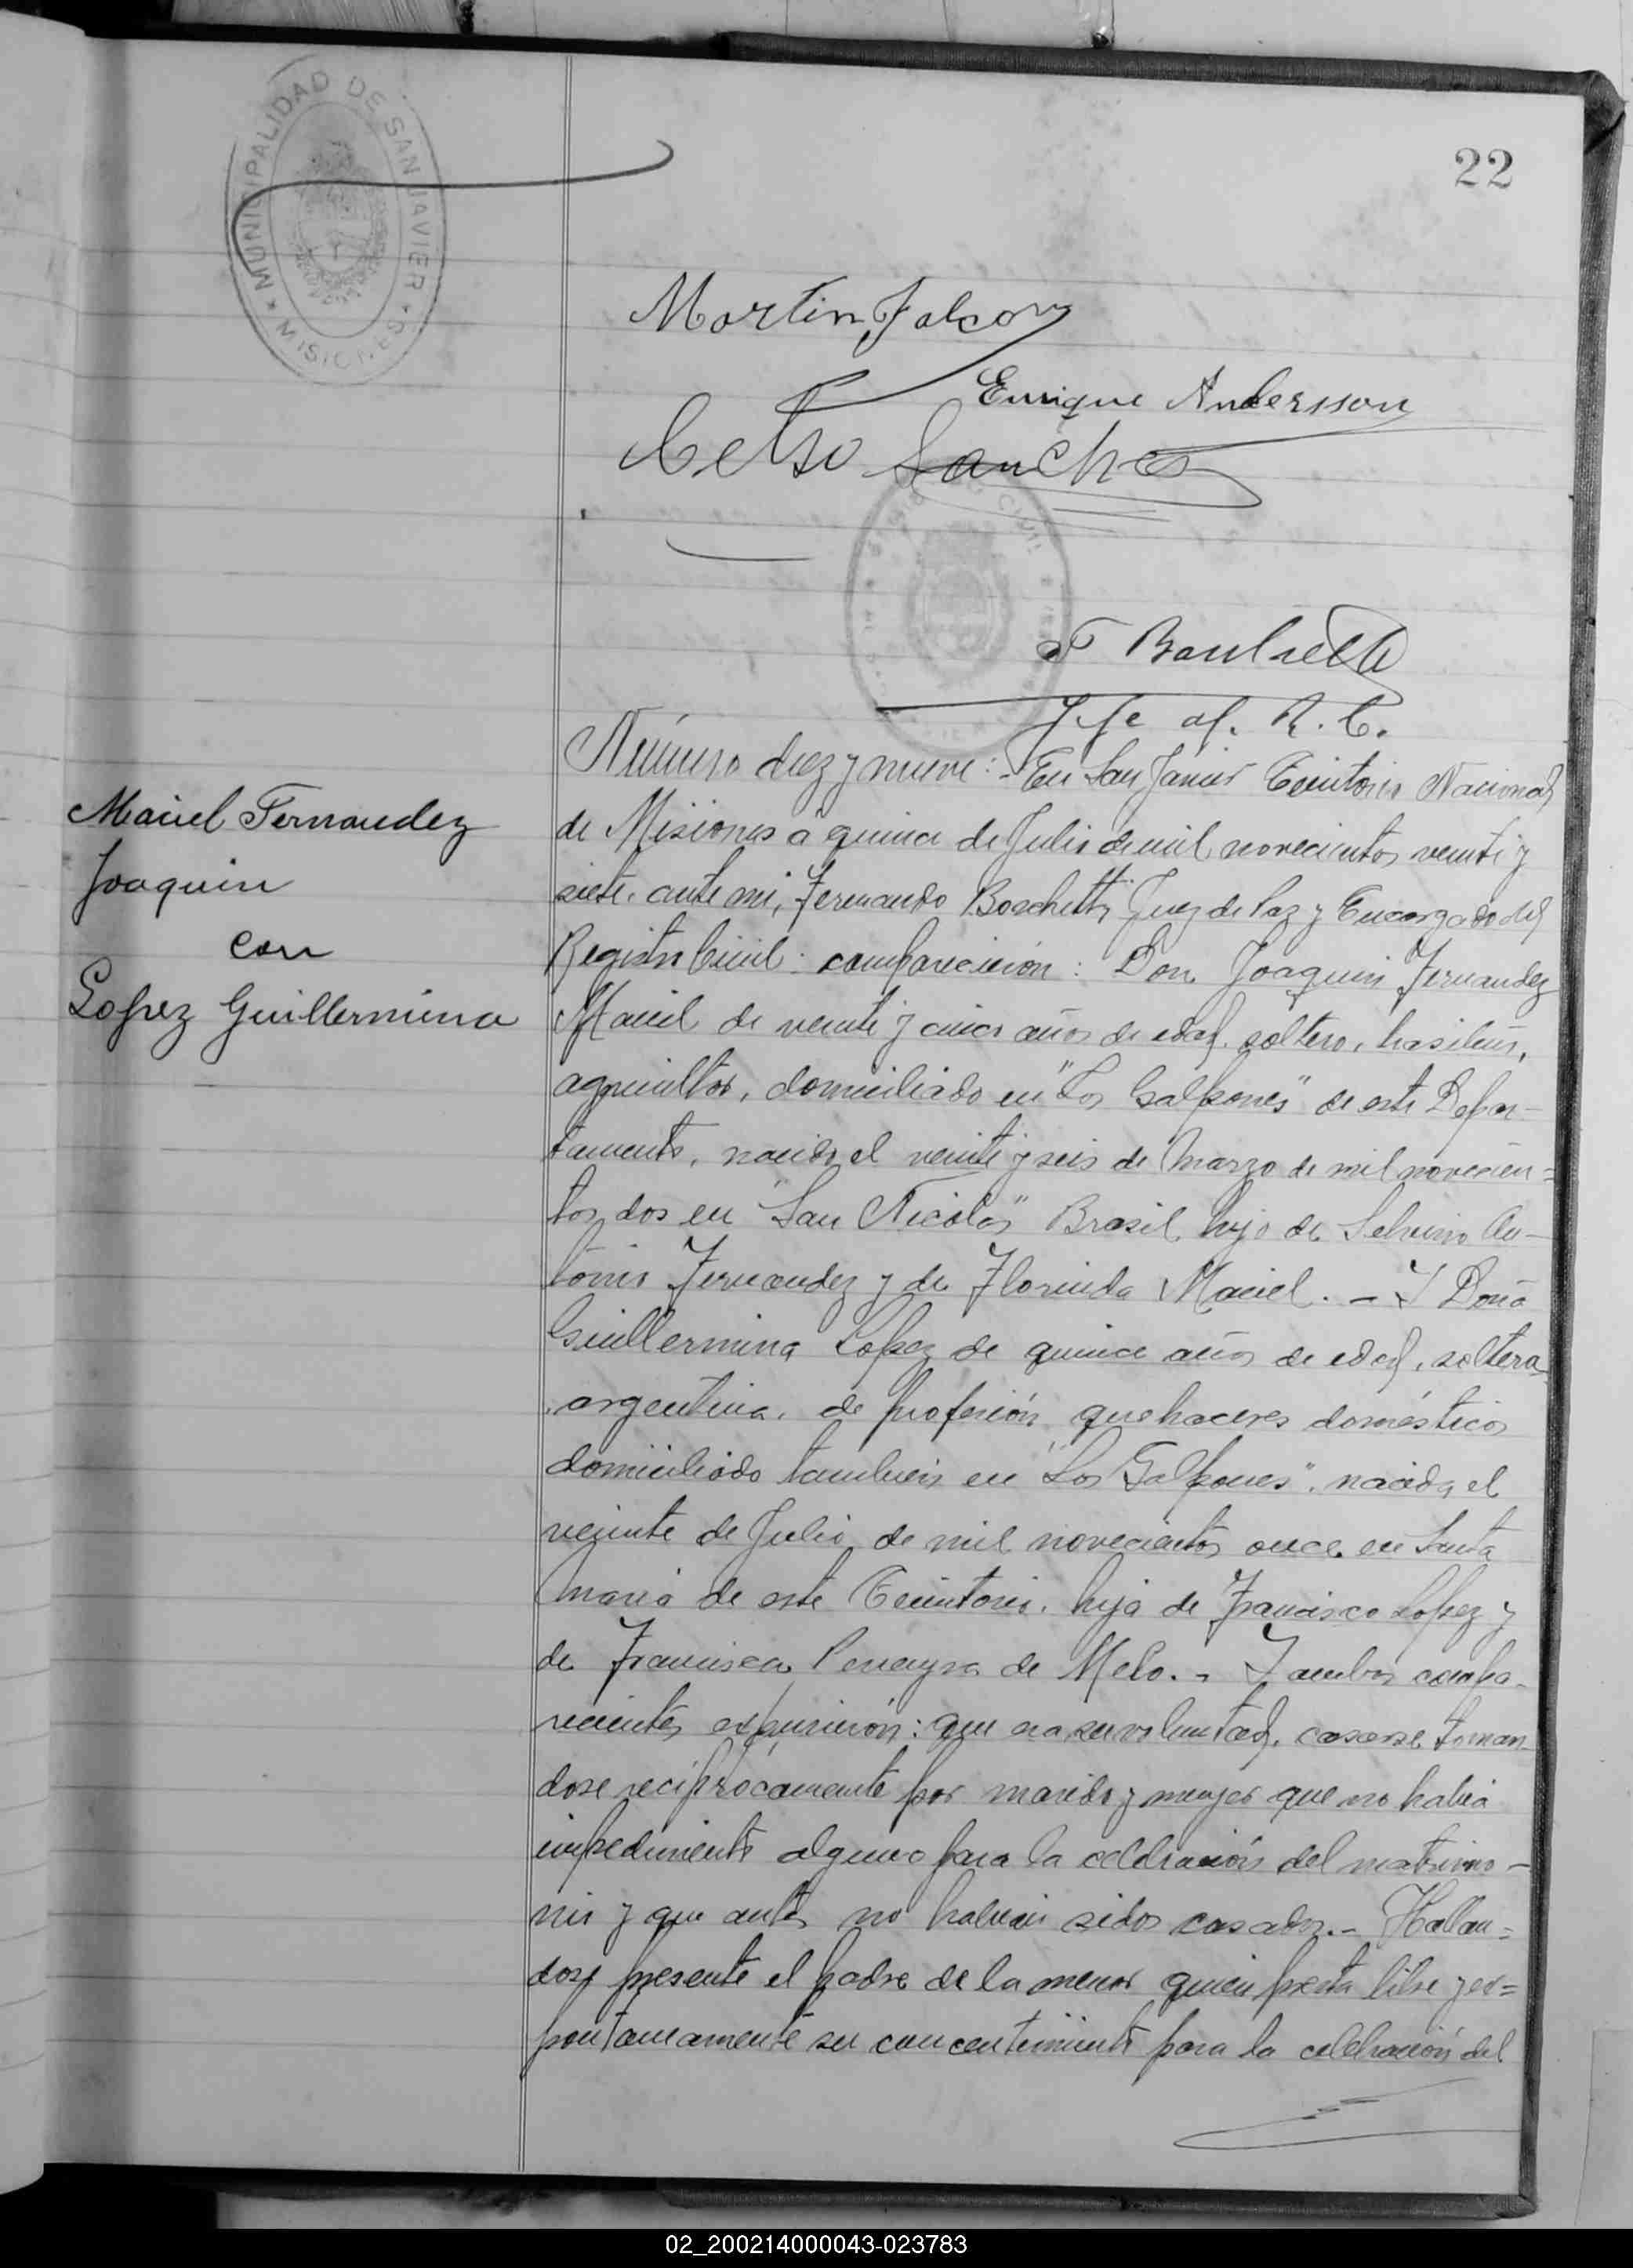 MUNICIPALIDAD DE SAN JAVIER
MISIONES
22
Martin Falcon
Enrique Andersson
Celso Sanches
F Boschetti
Jefe of. R. C.
Maciel Fernandez
Joaquin
con
Lopez Guillermina
Número diez y nueve:- En San Javier Territorio Nacional
de Misiones a quince de Julio de mil novecientos veinte y
siete. ante mi, Fernando Boschetti, Juez de Paz y Encargado del
Registro Civil: comparecieron: Don Joaquin Fernandez
Maciel de veinte y cinco años de edad. soltero, brasileño,
agricultor, domiciliado en "Los Galpones" de este Depar-
tamento, nacido el veinte y seis de Marzo de mil novecien=
tos dos en "San Nicolás" Brasil hijo de Selvino An-
tonio Fernandez y de Florinda Maciel. - Y Doña
Guillermina Lopez de quince años de edad, soltera
argentina, de profesión quehaceres domésticos
domiciliado tambien en "Los Galpones". nacida el
veinte de Julio de mil novecientos once en Santa
Maria de este Territorio. hija de Francisco Lopez y
de Francisca Pereyra de Melo. - Y ambos compa-
recientes expusieron: que era su voluntad, casarse toman-
dose reciprocamente por marido y mujer que no habia
impedimento alguno para la celebración del matrimo-
nio y que antes no habian sidos casados.- Hallan=
dose presente el padre de la menor quien presta libre y es=
pontaneamente su concentimiento para la celebración del
02_200214000043-023783